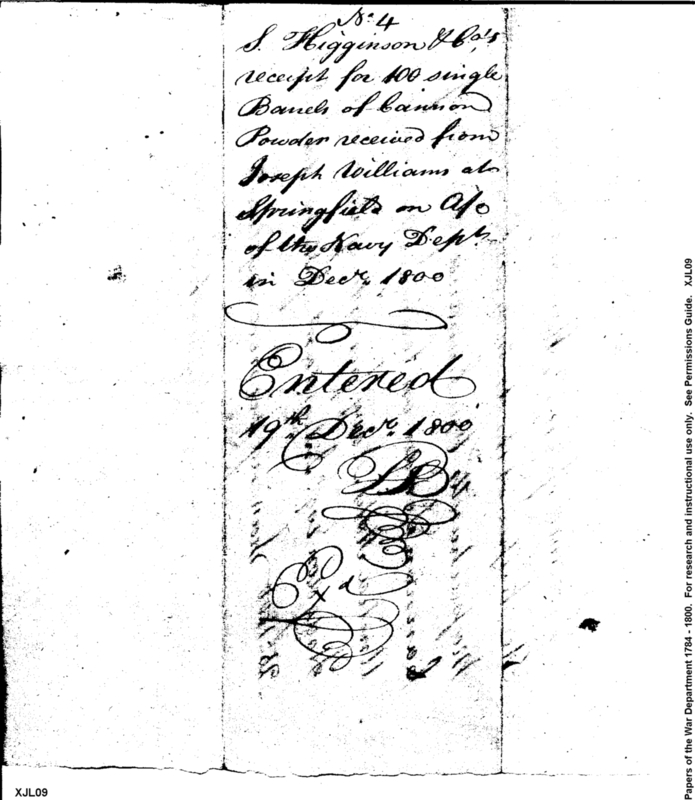 No. 4
S. Higginson & Co's
receipt for 100 single
Barrels of Cannon
Powder received from
Joseph Williams at
Springfield on A/c
of the Navy Dept
in Decr. 1800
Entered
19th Decr. 1800
Exd
XJL09
Papers of the War Department 1784 - 1800. For research and instructional use only. See Permissions Guide. XJL09